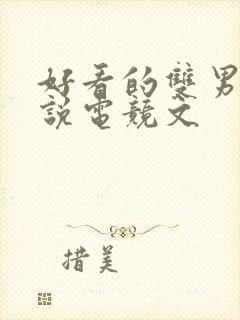 好看的雙男
說電競文
措美